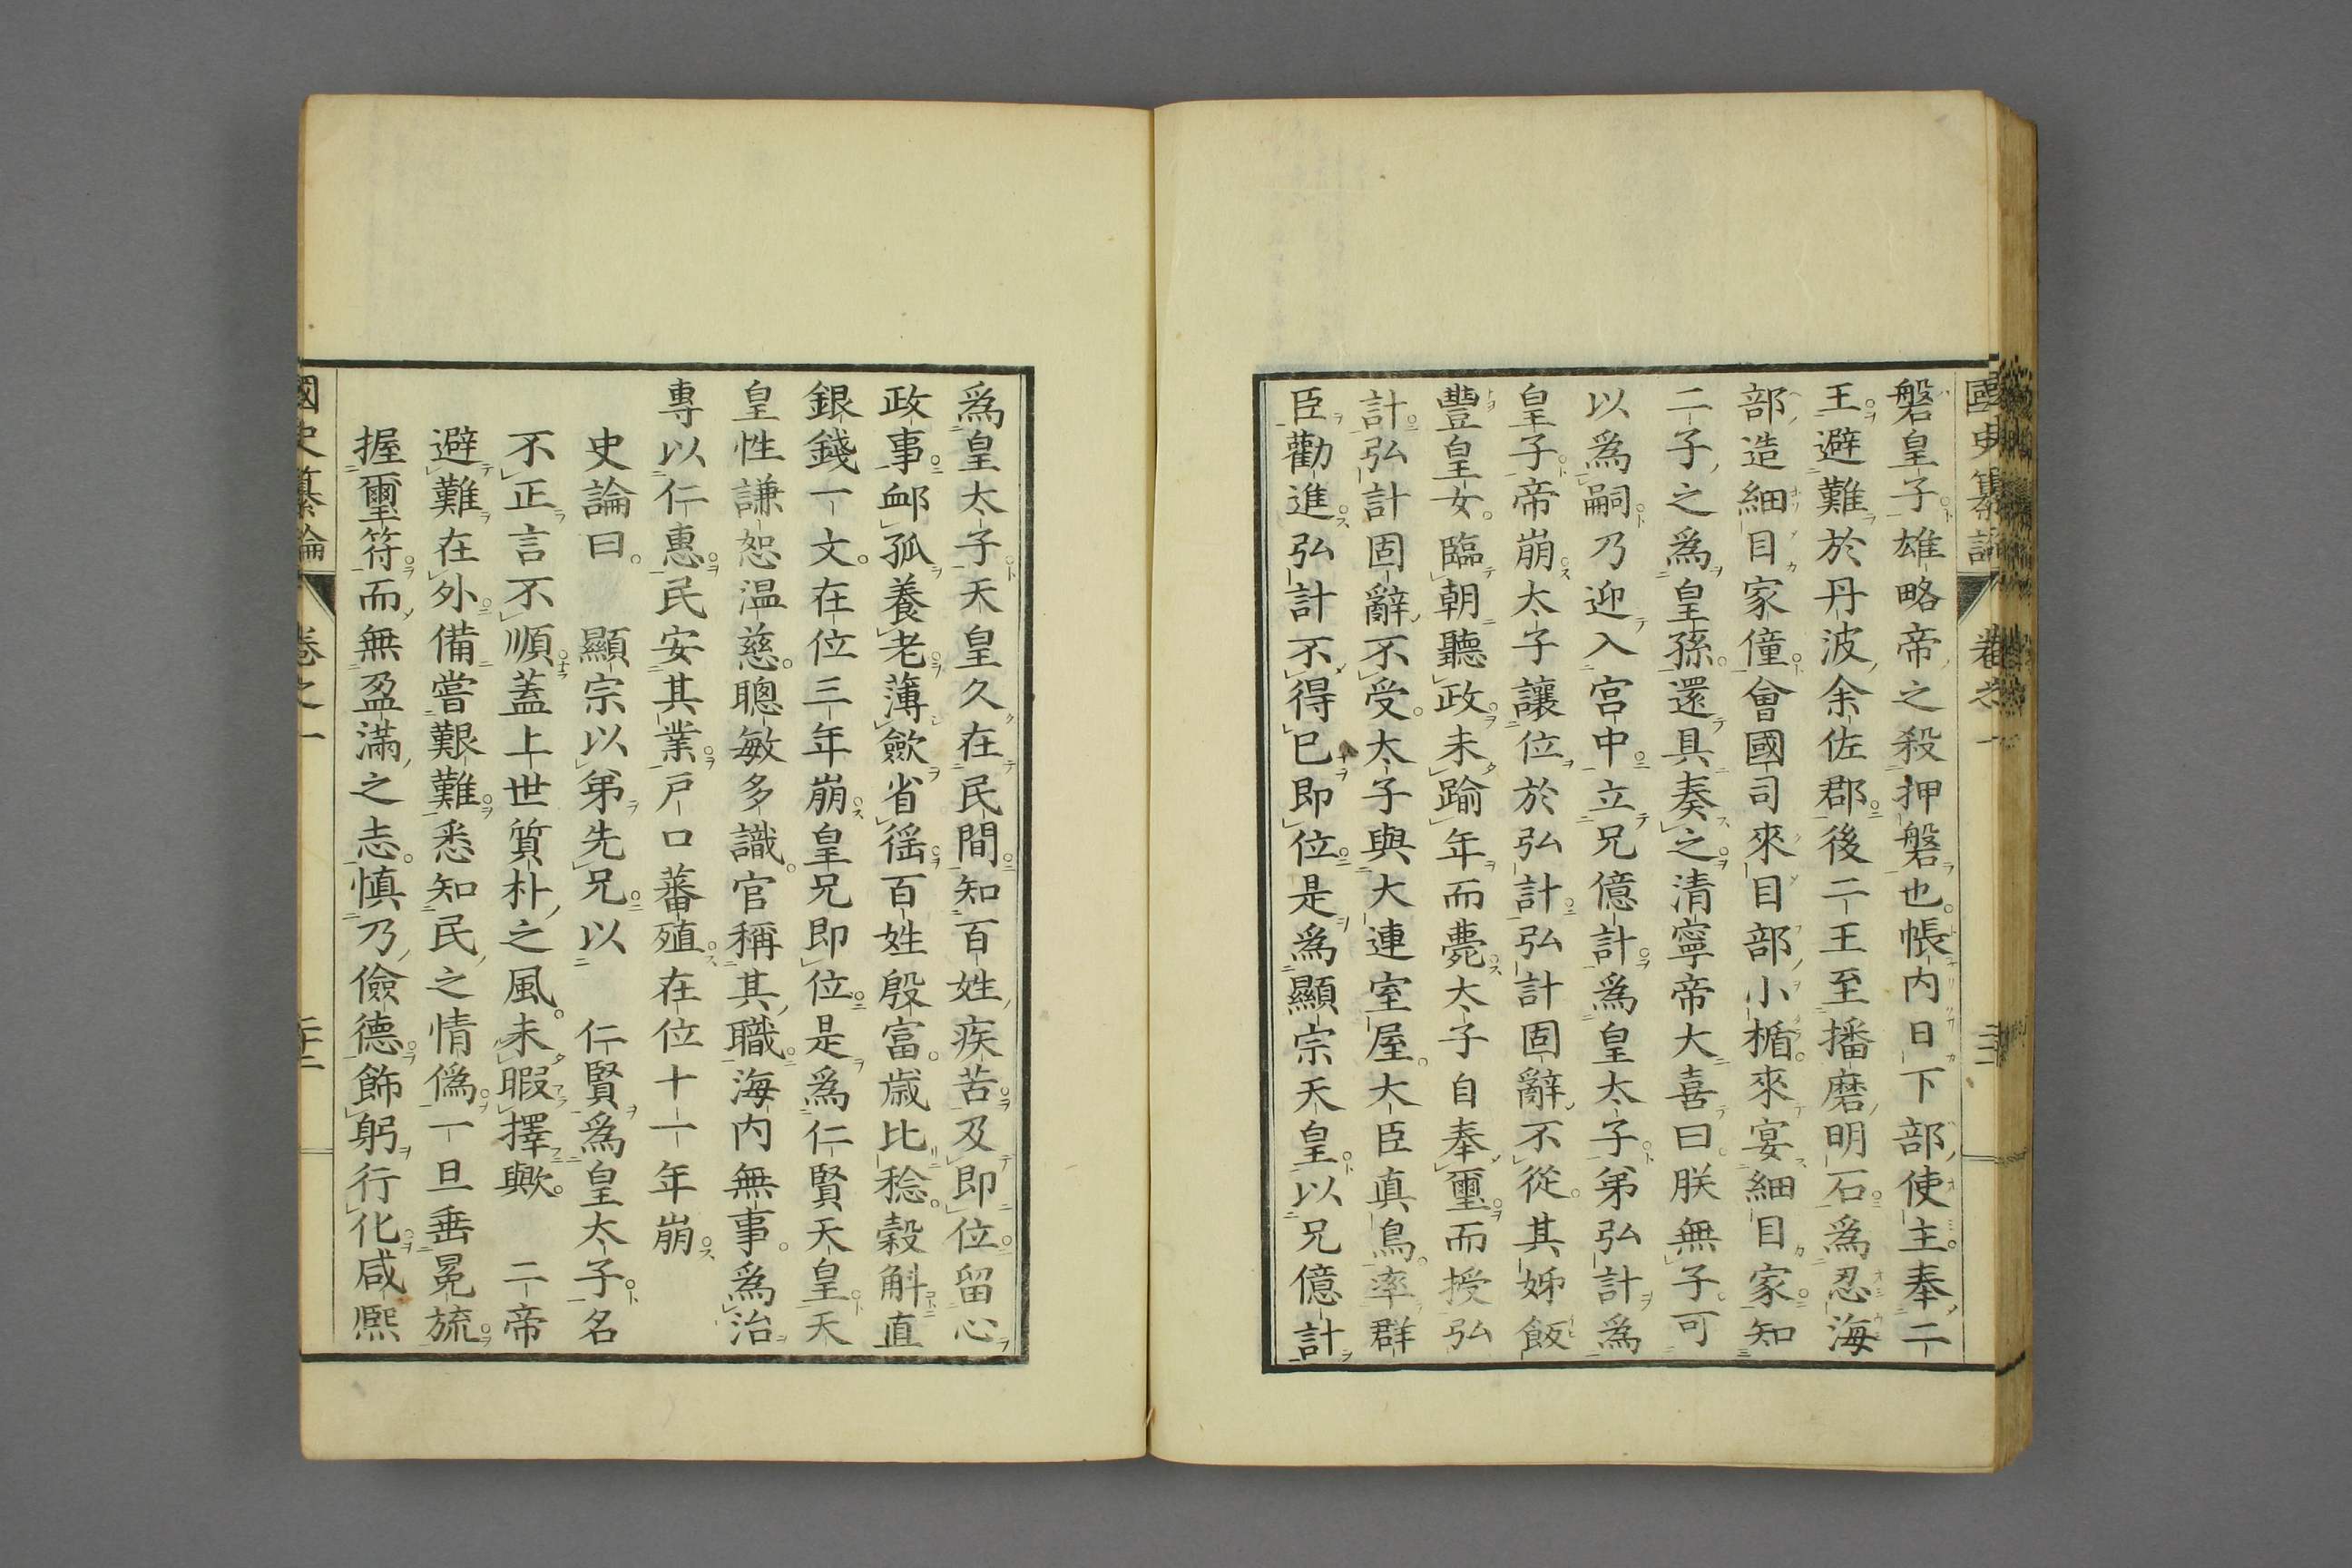 磐皇子雄略帝之殺押磐也帳内日下部使主奉二
王避難於丹波余佐郡後二王至播磨明石為忍海
部造細目家僮會國司來目部小楯來宴細目家知
二子之為皇孫還具奏之清寧帝大喜曰朕無子可
以為嗣乃迎入宮中立兄億計為皇太子弟弘計為
皇子帝崩太子讓位於弘計弘計固辭不從其姊飯
豐皇女臨朝聽政未踰年而薨太子自奉璽而授弘
計弘計固辭不受太子與大連室屋大臣真鳥率群
臣勸進弘計不得已即位是為顯宗天皇以兄億計
為皇太子天皇久在民間知百姓疾苦及即位留心
政事卹孤養老薄歛省徭百姓殷富歲比稔穀斛直
銀錢一文在位三年崩皇兄即位是為仁賢天皇天
皇性謙恕温慈聰敏多識官稱其職海内無事為治
專以仁惠民安其業戸口蕃殖在位十一年崩
史論曰 顯宗以弟先兄以 仁賢為皇太子名
不正言不順蓋上世質朴之風未暇擇歟 二帝
避難在外備嘗艱難悉知民之情偽一旦垂冕旒
握璽符而無盈滿之志慎乃儉德飾躬行化咸熙
國史纂論 卷之一